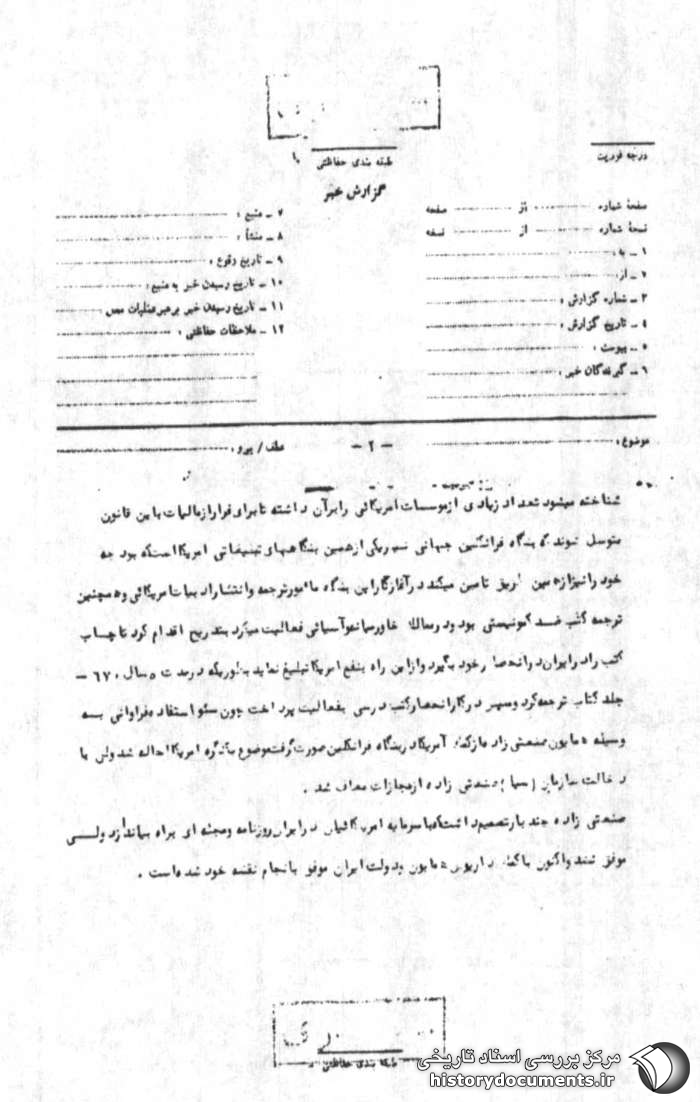 طبقه بندی حفاظتی
درجه فوریت
گزارش خبر
صفحهٔ شماره از صفحه
نسخهٔ شماره از نسخه
۱ ـ به :
۲ ـ از :
۳ ـ شماره گزارش :
٤ ـ تاریخ گزارش :
٥ ـ پیوست :
٦ ـ گیرندگان خبر :
۷ ـ منبع :
۸ ـ منشأ :
۹ ـ تاریخ وقوع :
۱۰ ـ تاریخ رسیدن خبر به منبع :
۱۱ ـ تاریخ رسیدن خبر برهبر عملیات محل
۱۲ ـ ملاحظات حفاظتی :
موضوع :
- ۲ -
عطف / پیرو :
شناخته میشود تعداد زیادی ازموسسات امریکائی رابرآن داشته تابرای فرارازمالیات باین قانون
متوسل شوند که بنگاه فرانکلین جهانی نیز یکی ازهمین بنگاههای تبلیغاتی امریکااست که بودجه
خود رانیزازهمین طریق تامین میکند درآغازکاراین بنگاه مامورترجمه وانتشارادبیات امریکائی وهمچنین
ترجمه کتب ضد کمونیستی بود ودرممالک خاورمیانه وآسیائی فعالیت میکرد بتدریج اقدام کرد تاچاپ
کتب رادرایران درانحصار خود بگیرد وازاین راه بنفع امریکاتبلیغ نماید بطوریکه درمدت ٥سال ٦٧٠ -
جلد کتاب ترجمه کرد وسپس درکارانحصارکتب درسی بفعالیت پرداخت چون سئو استفاده فراوانی بسه
وسیله همایون صنعتی زاده ازکمک آمریکا دربنگاه فرانکلین صورت گرفت موضوع بکنگره امریکااحاله شد ولی با
دخالت سازمان (سیا) صنعتی زاده ازمجازات معاف شد .
صنعتی زاده چند بارتصمیم داشت که باسرمایه امریکائیان درایران روزنامه ومجله ای براه بیاندازد ولسی
موفق نشد واکنون باکمک داریوش همایون ودولت ایران موفق بانجام نقشه خود شده است .
طبقه بندی حفاظتی
مرکز بررسی اسناد تاریخی
historydocuments.ir